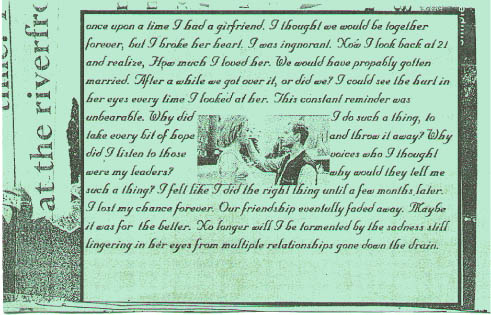 at the riverfr
once upon a time I had a girlfriend. I thought we would be together
forever, but I broke her heart. I was ingnorant. Now I look back at 21
and realize, How much I loved her. We would have propably gotten
married. After a while we got over it, or did we? I could see the hurt in
her eyes every time I looked at her. This constant reminder was
unbearable. Why did I do such a thing, to
take every bit of hope and throw it away? Why
did I listen to those voices who I thought
were my leaders? why would they tell me
such a thing? I fell like I did the right thing until a few months later.
I lost my chance forever. Our friendship eventully faded away. Maybe
it was for the better. No longer will I be tormented by the sadness still
lingering in her eyes from multiple relationships gone down the drain.